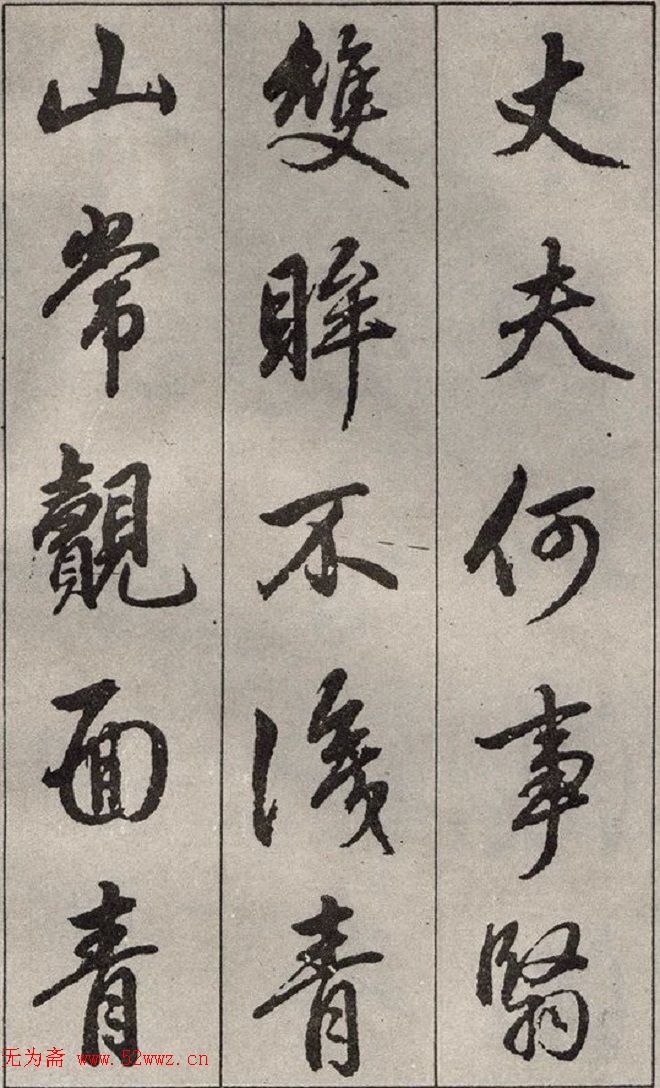 丈夫何事翳
雙眸不識青
山常覿面青
无为斋 www.52wwz.cn